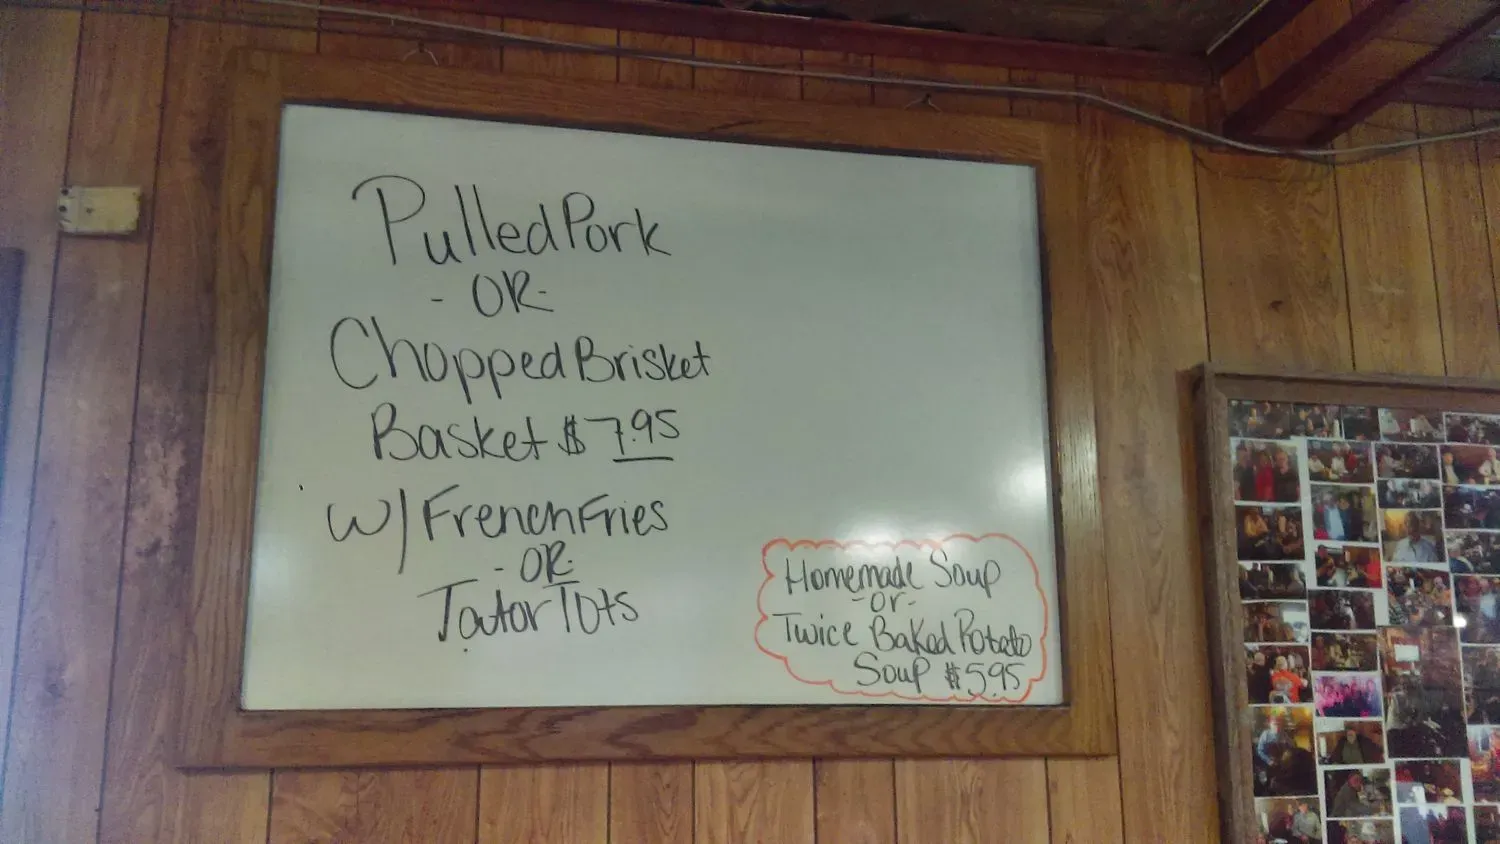 Pulled Pork
- OR -
Chopped Brisket
Basket $7.95
W/ French Fries
- OR -
Tator Tots
Homemade Soup
- or -
Twice Baked Potato
Soup $5.95